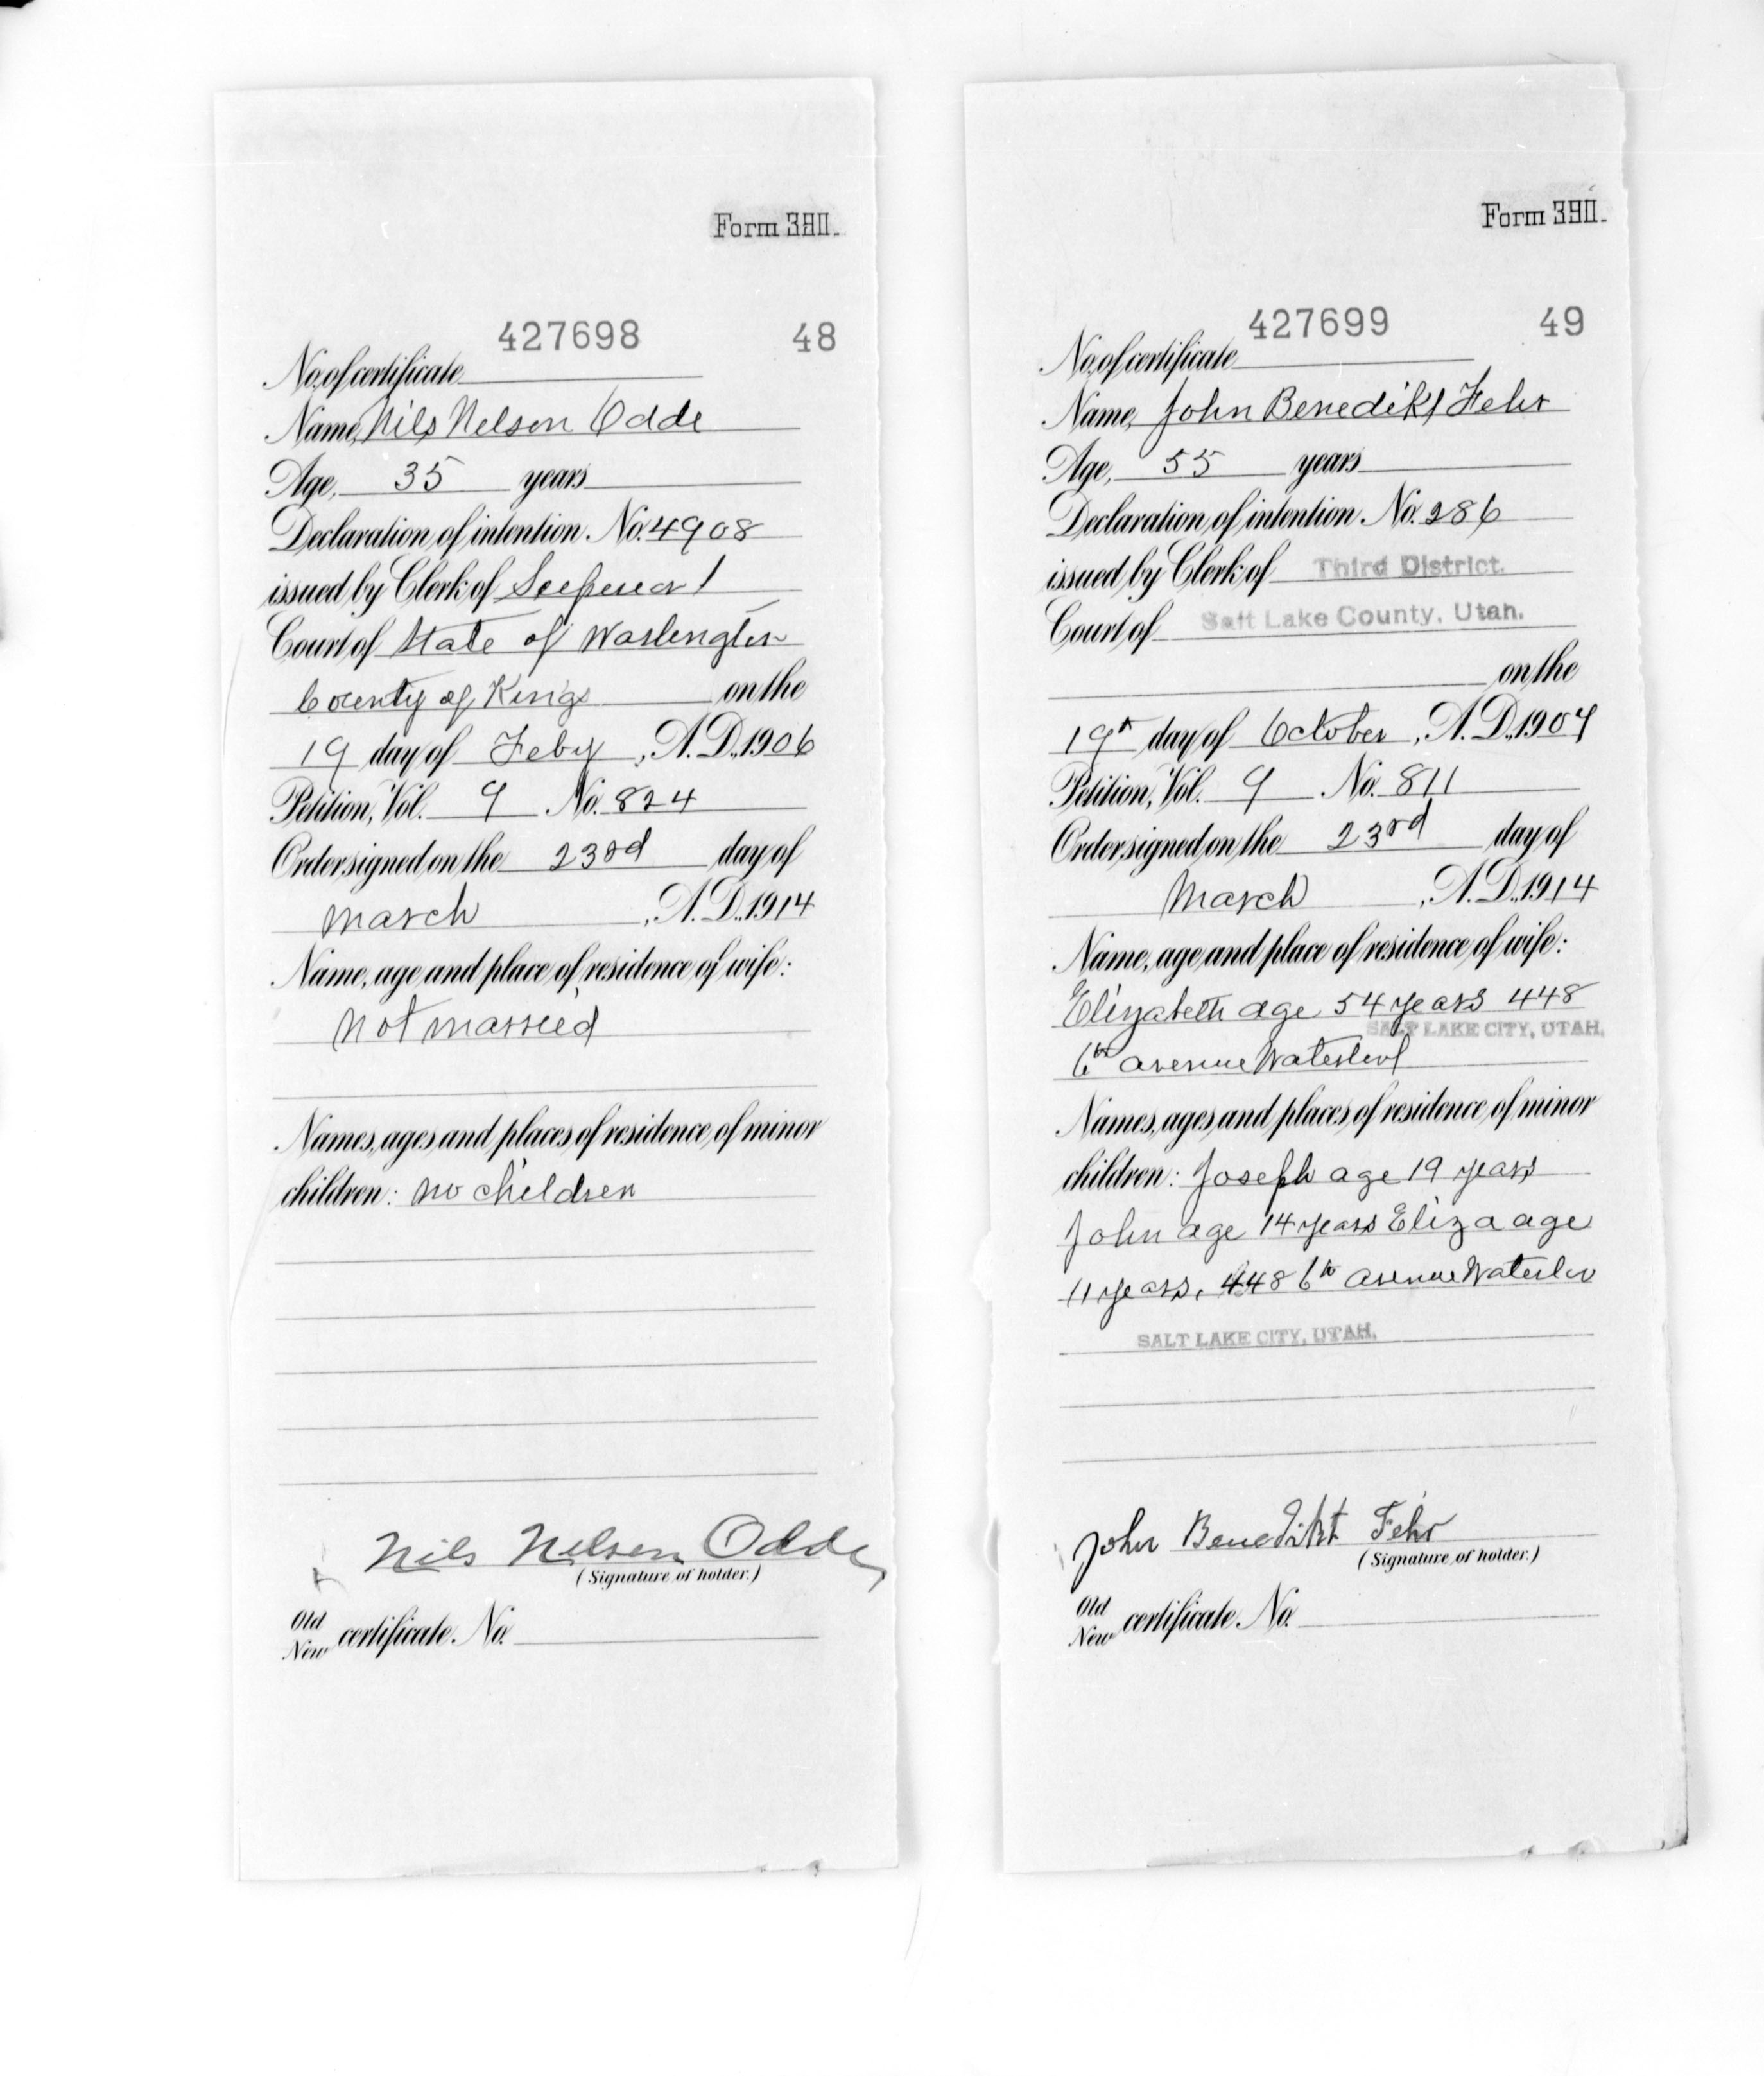 Form 380.
427698 48
No. of certificate
Name, Nils Nelson Odde
Age, 35 years
Declaration of intention. No. 4908
issued by Clerk of
Court of State of Washington
County of Kings on the
19 day of Feby, A.D. 1906
Petition, Vol. 9 No. 824
Order signed on the 23rd day of
March, A.D. 1914
Name, age and place of residence of wife:
not married
Names, ages and places of residence of minor
children: no children
Nils Nelson Odde
(Signature of holder.)
Old
New certificate No.
Form 390.
427699 49
No. of certificate
Name, John Benedikt Fehr
Age, 55 years
Declaration of intention. No. 286
issued by Clerk of Third District.
Court of Salt Lake County, Utah.
on the
19th day of October, A.D. 1907
Petition, Vol. 9 No. 811
Order signed on the 23rd day of
March, A.D. 1914
Name, age and place of residence of wife:
Elizabeth age 54 years 448
SALT LAKE CITY, UTAH.
6th avenue Waterloo
Names, ages and places of residence of minor
children: Joseph age 19 years
John age 14 years Eliza age
11 years, 448 6th avenue Waterloo
SALT LAKE CITY, UTAH.
John Benedikt Fehr
(Signature of holder.)
Old
New certificate No.